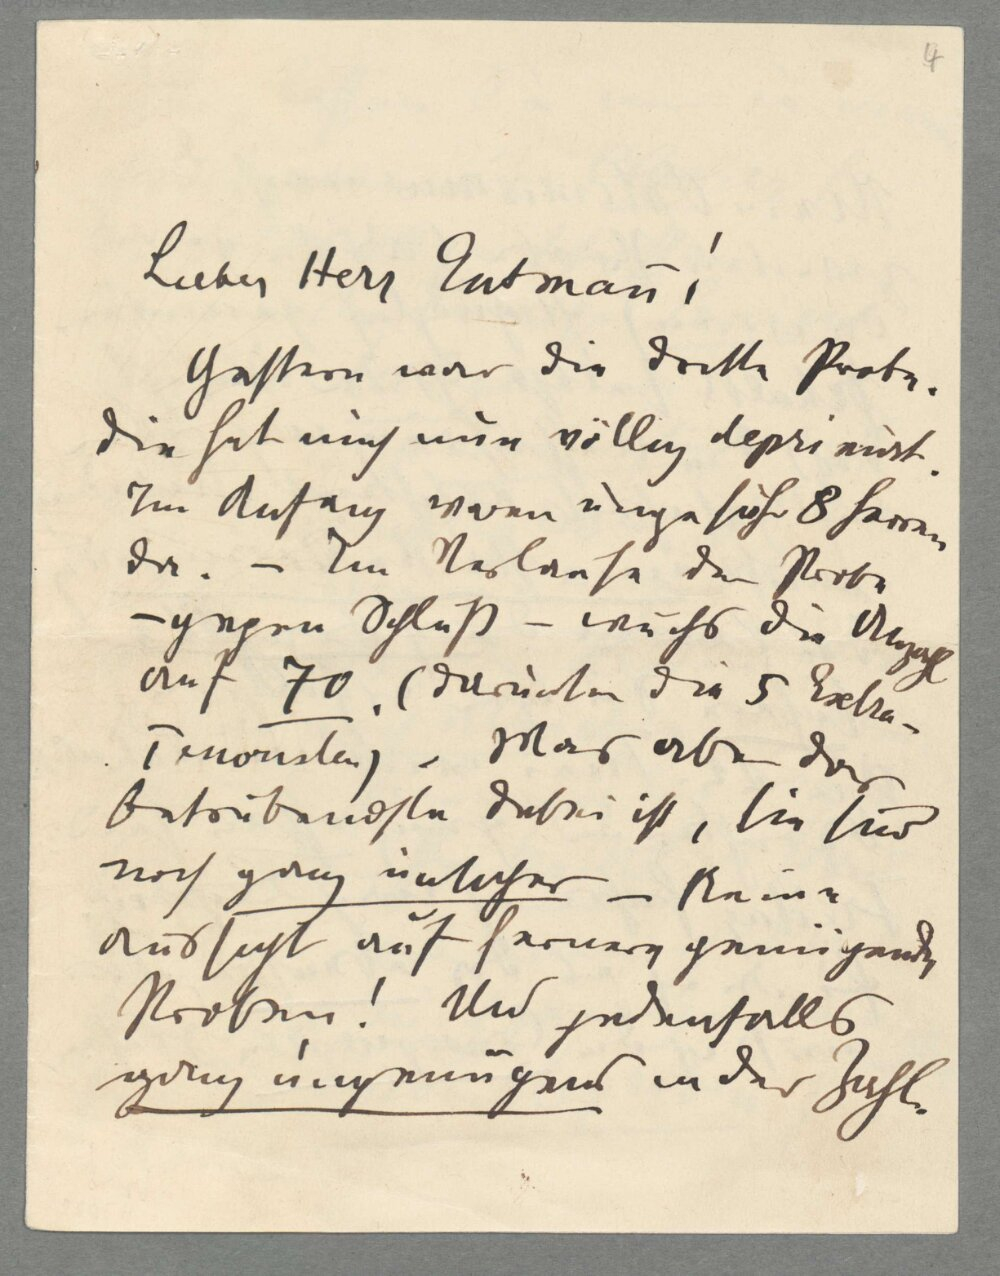 4
Lieber Herr Gutmañ!
Gestern war die dritte Probe.
Die hat mich nun völlig deprimirt.
Im Anfang waren ungefähr 8 Herren
da. – Im Verlaufe der Probe
– gegen Schluß – wuchs die Anzahl
auf 70. (darunter die 5 Extra-
Tenoristen). Was aber das
Betrübendste dabei ist, sie sind
noch ganz unsicher – Keine
Aussicht auf fernere genügende
Proben! Und jedenfalls
ganz ungenügend in der Zahl.